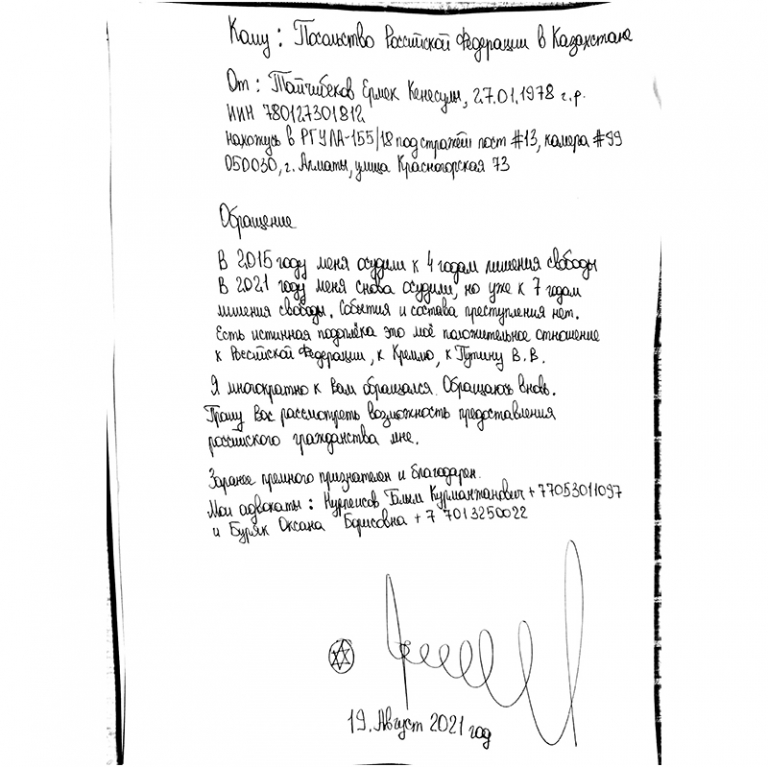 Кому: Посольство Российской Федерации в Казахстане
От: Тайчибеков Ермек Кенесулы, 27.01.1978 г.р.
ИИН 780127301812
нахожусь в РГУ ЛА-155/18 под стражей пост #13, камера #99
050030, г. Алматы, улица Красногорская 73
Обращение
В 2015 году меня осудили к 4 годам лишения свободы
В 2021 году меня снова осудили, но уже к 7 годам
лишения свободы. События и состава преступления нет.
Есть истинная подоплёка это моё положительное отношение
к Российской Федерации, к Кремлю, к Путину В.В.
Я многократно к Вам обращался. Обращаюсь вновь.
Прошу Вас рассмотреть возможность предоставления
российского гражданства мне.
Заранее премного признателен и благодарен.
Мои адвокаты: Нурпеисов Галым Курмантанович +77053011097
и Буряк Оксана Борисовна +7 7013250022
19. Август 2021 год